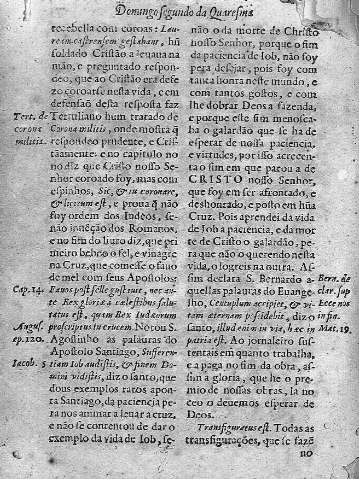 Domingo segundo da Quaresma
te: & ella com coroas: Lau-
rea in castrensem est abant, hũ
soldado Cristão a leuaua na
mão, e preguntado respon-
deo, que ao Cristão era defe-
zo coroarse nesta vida, e em
defensaõ desta resposta faz
Tertuliano hum tratado de
Corona militis, onde mostra q̃
respondeo prudente, e Cris-
tãamente: e no capitulo no
no diz que Cristo nosso Se-
nhor coroado foy, mas com
espinhos, Sic, & tu coronare,
& licitum est, e proua q̃ não
foy ordem dos Iudeos, se-
não inuẽção dos Romanos,
e no fim do liuro diz, que pri
meiro bebeo o fel, e vinagre
na Cruz, que comesse o fauo
de mel com seus Apostolos:
Fauos post felle gustauit, nec an-
te Rex gloriæ a cælestibus salu-
tatus est, quam Rex Iudæorum
proscriptus in crucem. Notou S.
Agostinho as palauras do
Apostolo Santiago, Sufferen-
tiam Iob audistis, & finem Do-
mini vidistis, diz o santo, que
dous exemplos ratos apon-
ta Santiago, da paciencia pe-
ra nos animar a leuar a cruz,
e não se contentou de dar o
exemplo da vida de Iob, se-
Tert. de
corona
militis.
Cap. 14.
August.
ep. 120.
Iacob. 5
não o da morte de Christo
nosso Senhor, porque o fim
da paciencia de Iob, não foy
pera desejar, pois foy com
tanta honra neste mundo, e
com tantos gostos, e com
lhe dobrar Deos a fazenda,
e porque este fim menosca-
ba o galardão que se ha de
esperar de nossa paciencia,
e virtudes, por isso acrecen-
ta o fim em que parou a de
CRISTO nosso Senhor,
que foy em ser afrontado, e
deshonrado, e posto em hũa
Cruz. Pois aprendei da vida
de Iob a paciencia, e da mor
te de Cristo o galardão, pe-
ra que não o querendo nesta
vida, o logreis na outra. As-
sim declara S. Bernardo a-
quellas palauras do Euange-
lho, Centuplum accipiet, & vi-
tam æternam possidebit, diz o
santo, illud enim in via, hæc in
patria est. Ao jornaleiro sus-
tentais em quanto trabalha,
e a paga no fim da obra, as-
sim a gloria, que he o pre-
mio de nossas obras, la no
ceo o deuemos esperar de
Deos.
Transfiguratus est. Todas as
transfigurações, que se fazẽ
no
Bern. de
clar. sup
Ecce nos
Mat. 19.